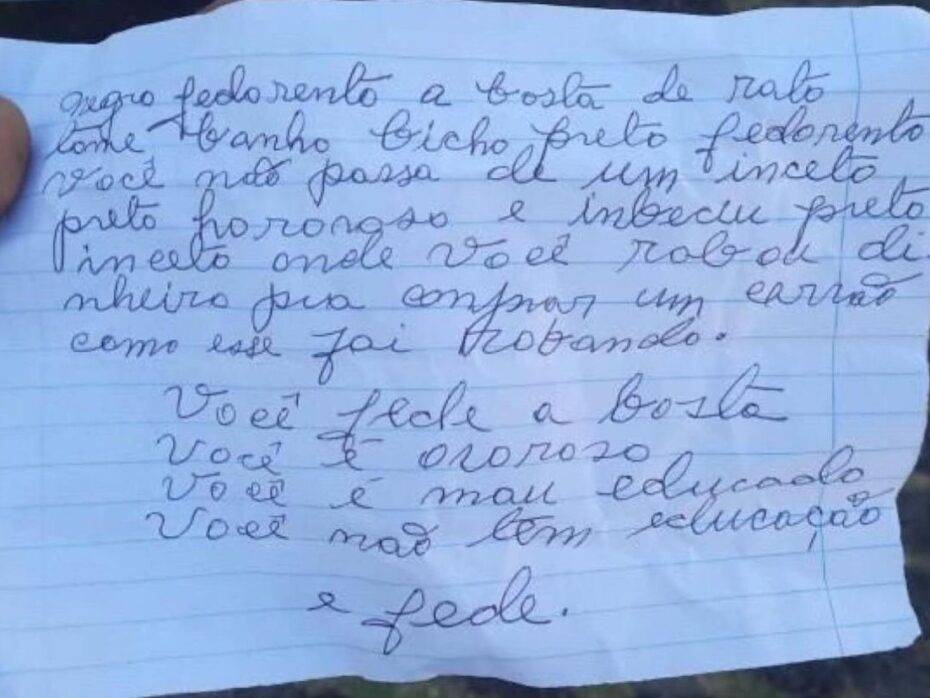 negro fedorento a bosta de rato
tome banho bicho preto fedorento
você não passa de um inceto
preto hororoso e inbeciu preto
inceto onde você robou di
nheiro pra conprar um carrão
como esse foi robando.
Você fede a bosta
Você é ororoso
Você é mau educado
Você não tem educação
e fede.